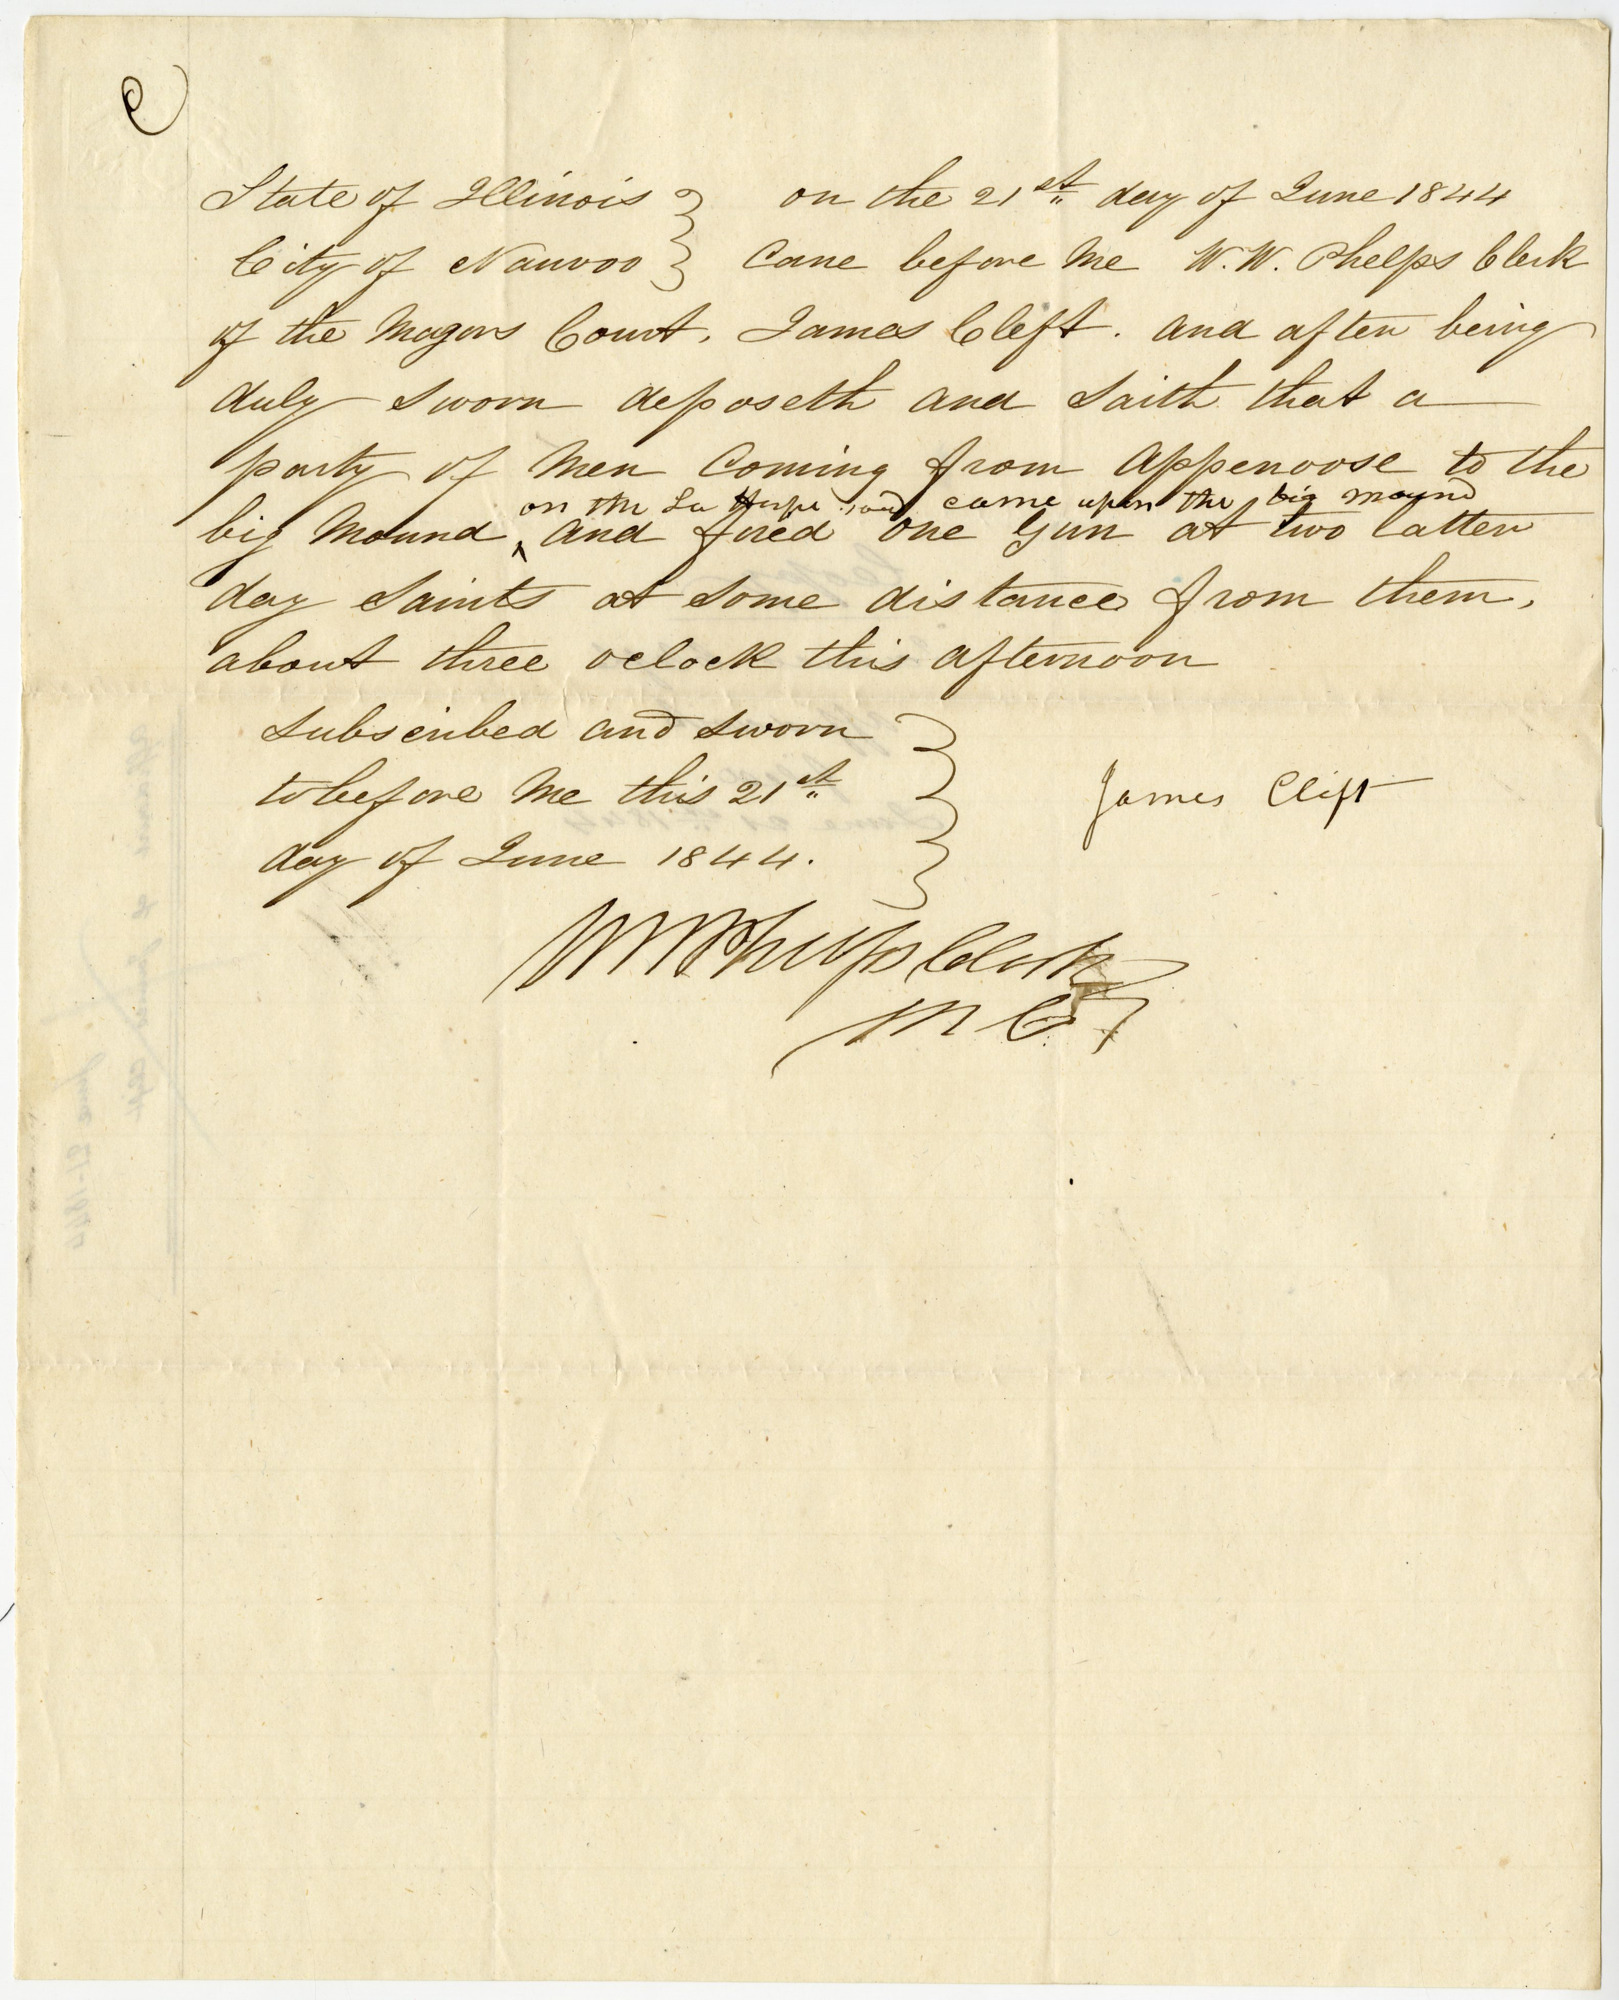 C
State of Illinois } on the 21st day of June 1844
City of Nauvoo } Came before me W. W. Phelps Clerk
of the Mayors Court, James Cleft. and after being
duly sworn deposeth and saith that a
party of Men Coming from Appenoose to the
on the La Harpe road came upon the big mound
big Mound ^ and fired one Gun at two latter
day Saints at some distance from them,
about three oclock this afternoon
Subscribed and sworn
to before me this 21st
day of June 1844.
James Clift
W W Phelps Clerk
M C